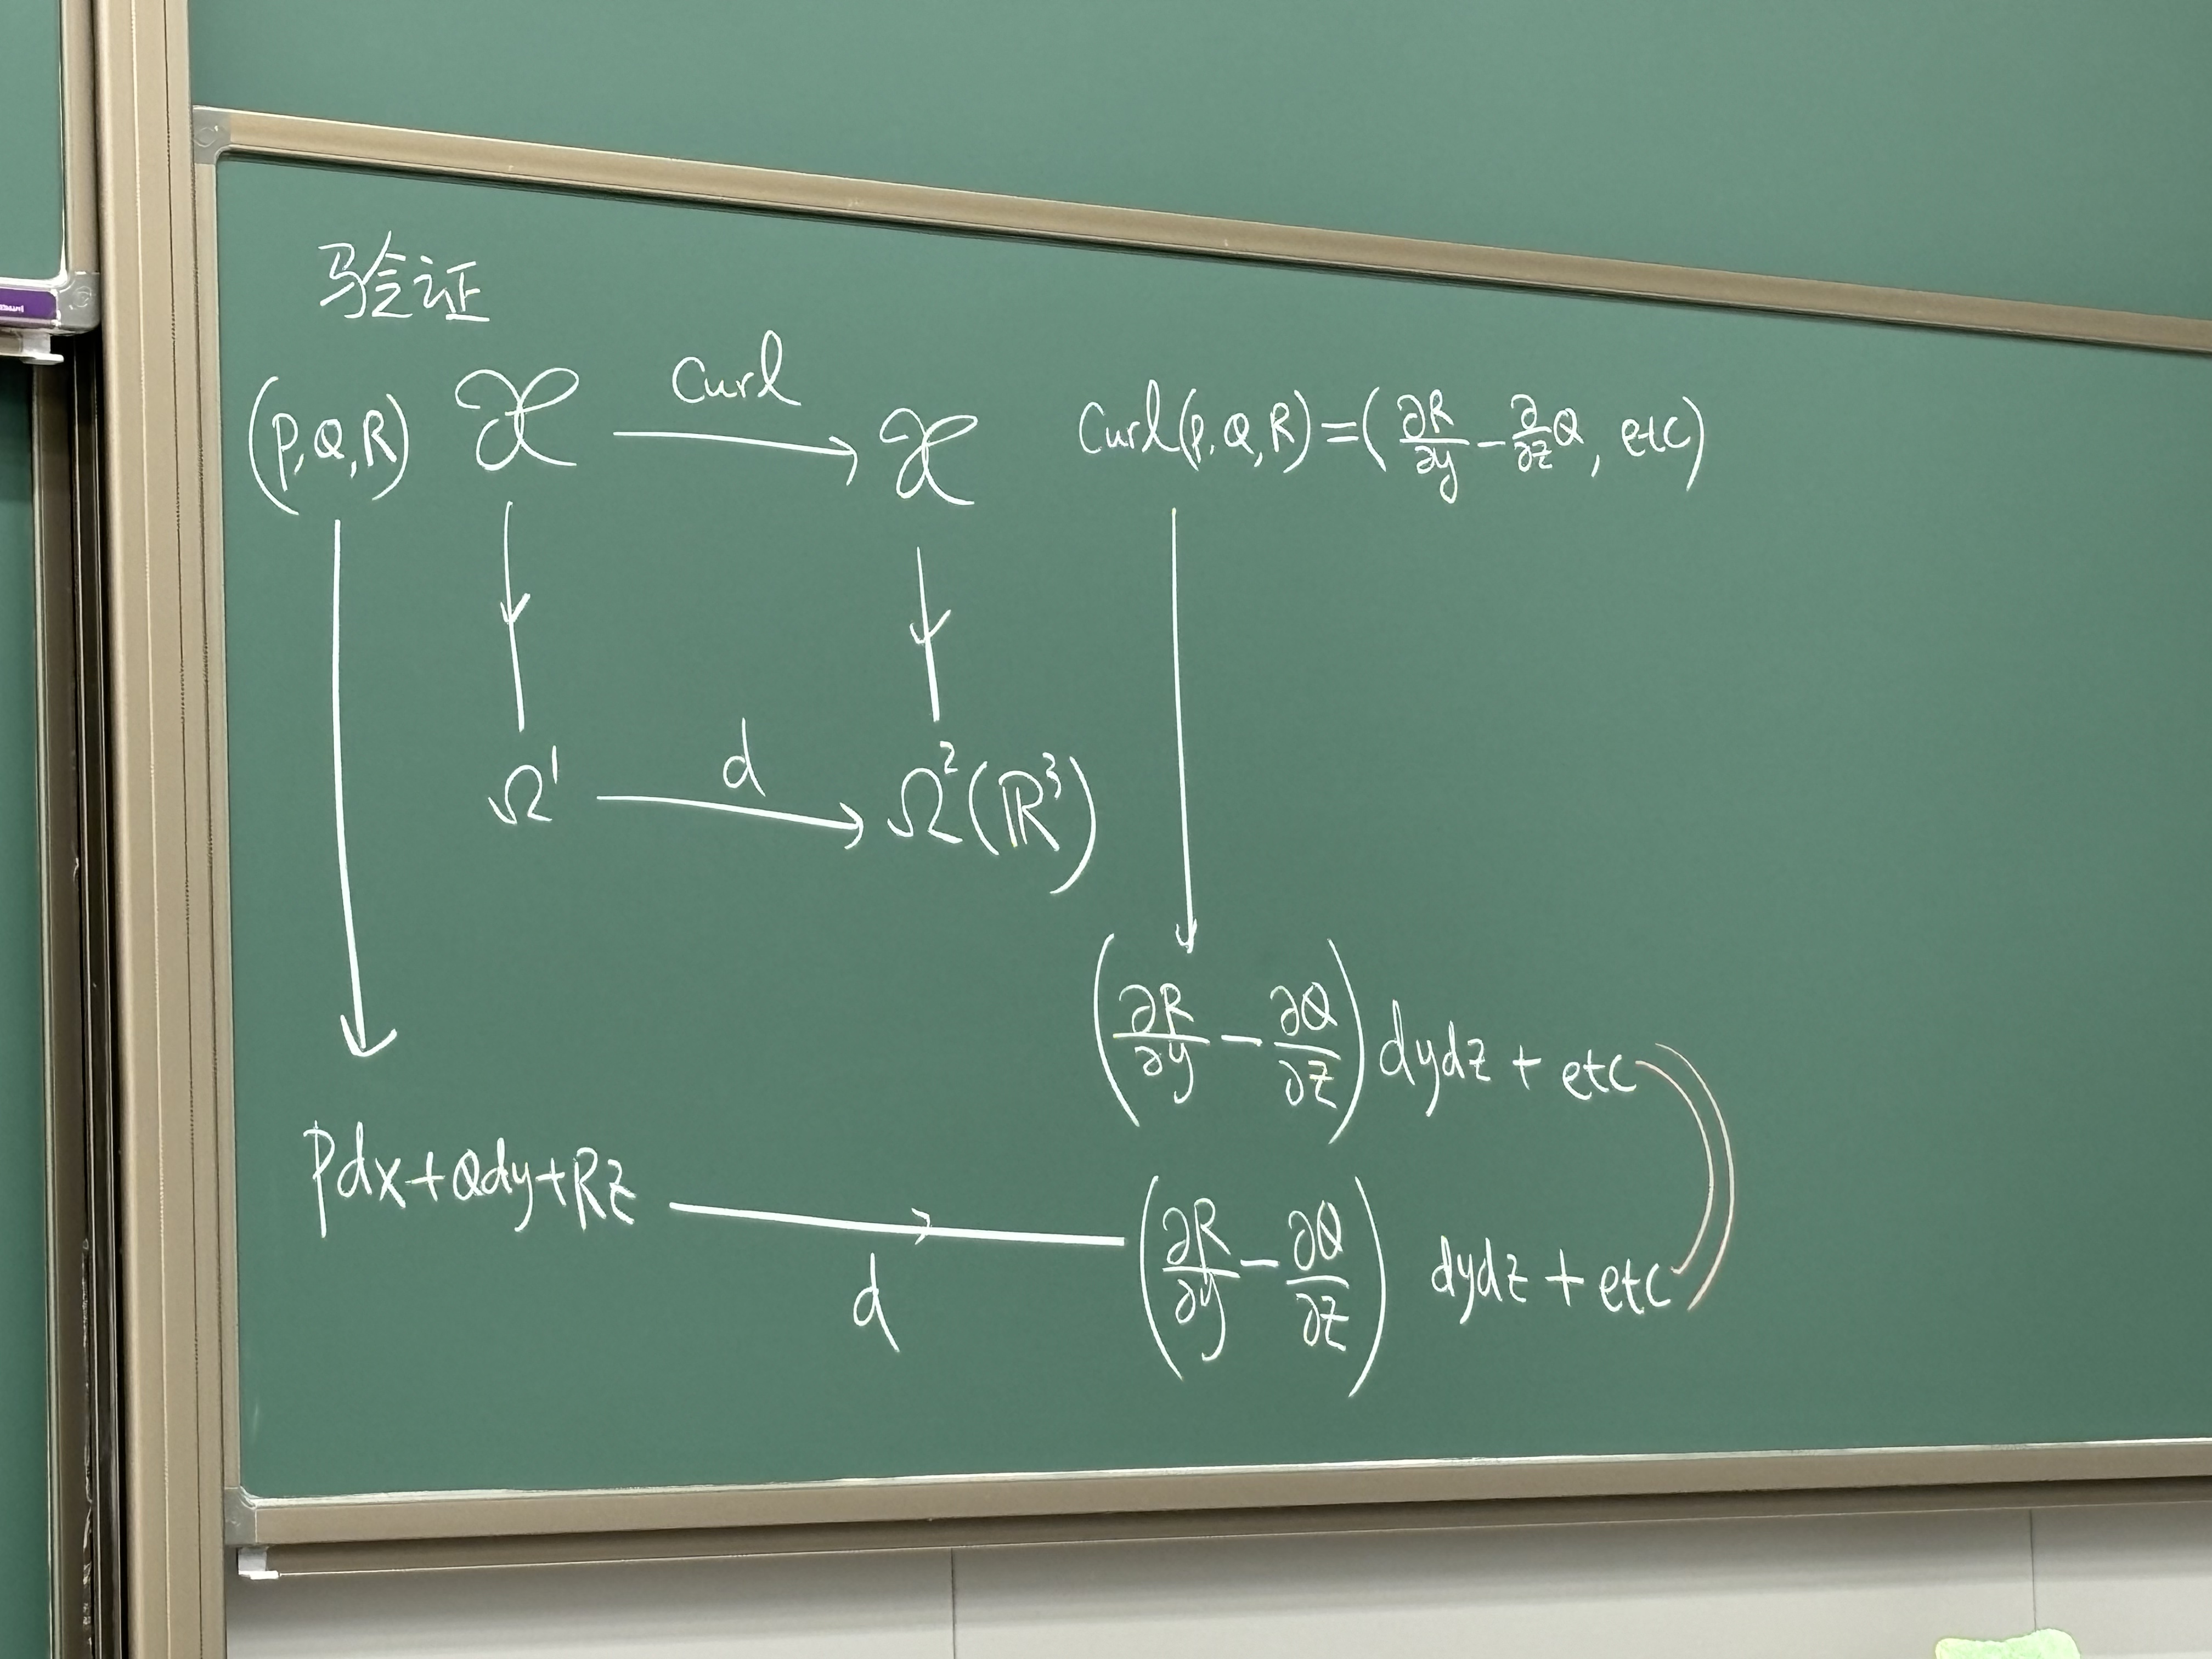 验证
Curl
(P,Q,R) 𝒳 → 𝒳 Curl(P,Q,R)=(∂R/∂y - ∂/∂z Q, etc)
d
Ω¹ → Ω²(ℝ³)
(∂R/∂y - ∂Q/∂z) dydz + etc
Pdx+Qdy+Rz → (∂R/∂y - ∂Q/∂z) dydz + etc
d